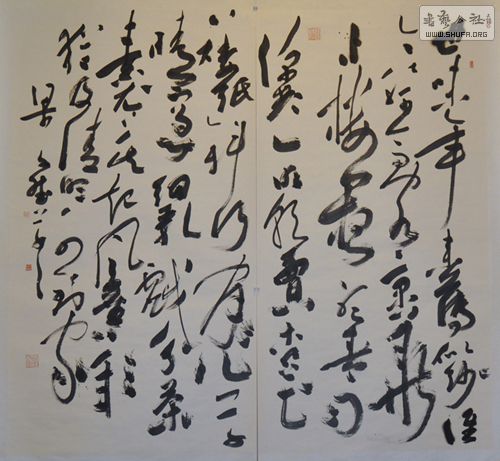 书艺公社
WWW.SHUFA.ORG
世味年来薄似纱谁
令骑马客京华
小楼一夜听春雨
深巷明朝卖杏花
矮纸斜行闲作草
晴窗细乳戏分茶
素衣莫起风尘叹
犹及清明可到家